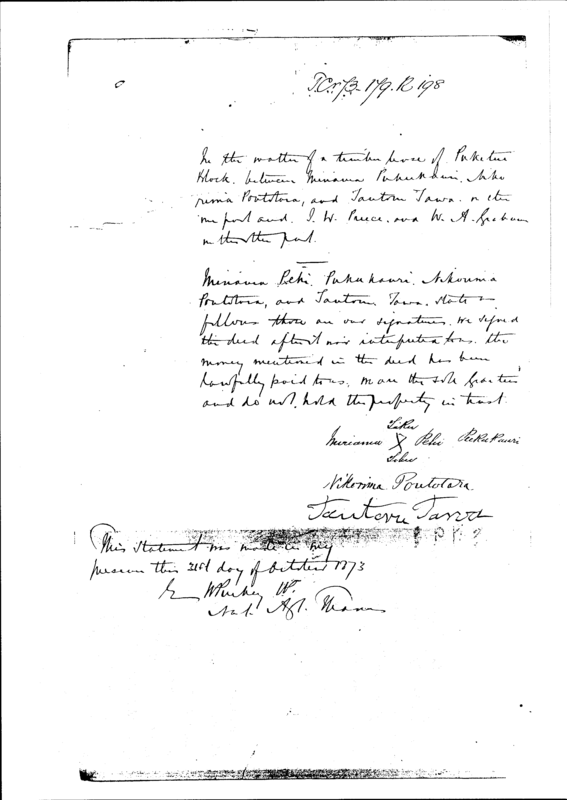 In the matter of a timber lease of Puketui
Block between Miriama Pukukauri, Niko
rima Poutotara, and Tautoru Tawa on the
one part and J. W. Preece and W. A. Graham
on the other part.
Miriama Pehi Pukukauri, Nikorima
Poutotara, and Tautoru Tawa, state as
follows those are our signatures. We signed
the deed after it was interpreted to us. The
money mentioned in the deed has been
lawfully paid to us. We are the sole grantees
and do not hold the property in trust.
Miriama X Pehi Pukukauri
Nikorima Poutotara.
Tautoru Tawa
This statement was made in my
presence this 31st day of October 1873
E W Puckey
Nat. Agt. Thames